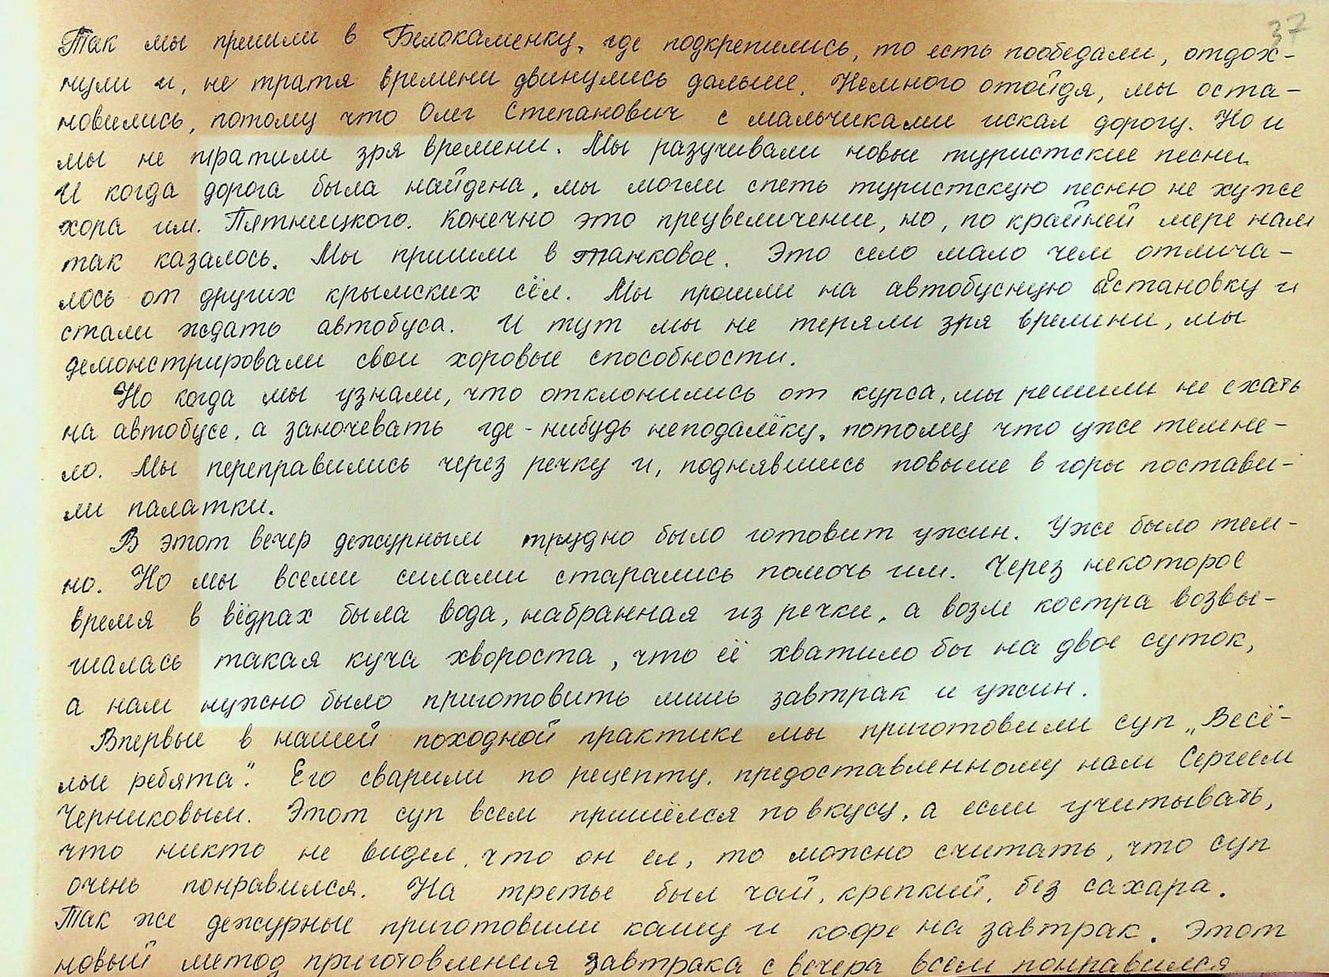 37
Так мы пришли в Белокаменку, где подкрепились, то есть пообедали, отдох-
нули и, не тратя времени двинулись дальше. Немного отойдя, мы оста-
новились, потому что Олег Степанович с мальчиками искал дорогу. Но и
мы не тратили зря времени. Мы разучивали новые туристские песни.
И когда дорога была найдена, мы могли спеть туристскую песню не хуже
хора им. Пятницкого. Конечно это преувеличение, но, по крайней мере нам
так казалось. Мы пришли в танковое. Это село мало чем отлича-
лось от других крымских сёл. Мы прошли на автобусную остановку и
стали ждать автобуса. И тут мы не теряли зря времини, мы
демонстрировали свои хоровые способности.
Но когда мы узнали, что отклонились от курса, мы решили не ехать
на автобусе, а заночевать где-нибудь неподалёку, потому что уже темне-
ло. Мы переправились через речку и, поднявшись повыше в горы постави-
ли палатки.
В этот вечер дежурным трудно было готовит ужин. Уже было тем-
но. Но мы всеми силами старались помочь им. Через некоторое
время в вёдрах была вода, набранная из речки, а возле костра возвы-
шалась такая куча хвороста, что её хватило бы на двое суток,
а нам нужно было приготовить лишь завтрак и ужин.
Впервые в нашей походной практике мы приготовили суп „Весё-
лые ребята". Его сварили по рецепту, предоставленному нам Сергеем
Черниковым. Этот суп всем пришёлся по вкусу, а если учитывать,
что никто не видел, что он ел, то можно считать, что суп
очень понравился. На третье был чай, крепкий, без сахара.
Так же дежурные приготовили кашу и кофе на завтрак. Этот
новый метод приготовления завтрака с вечера всем понравился